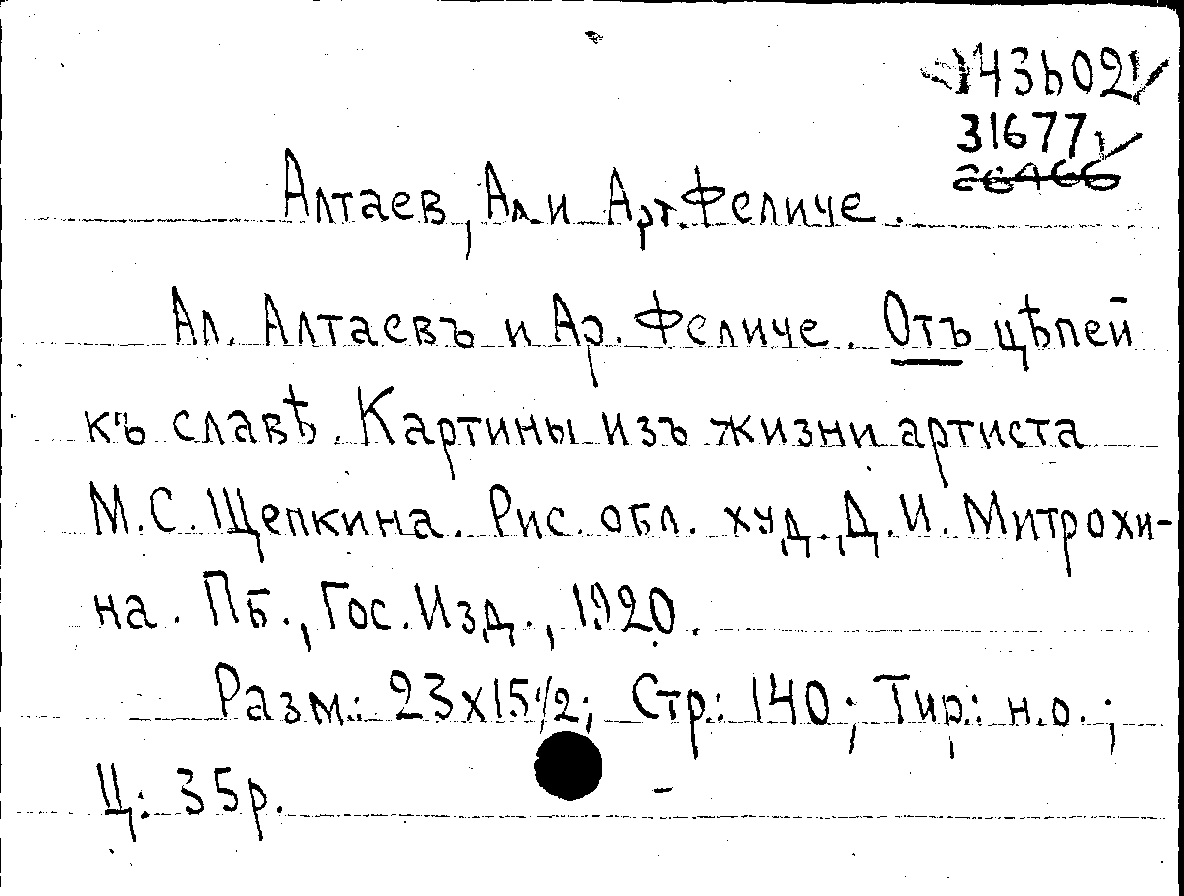 31677
Алтаев, Ал. и Арт. Феличе.
Ал. Алтаевъ и Ар. Феличе. Отъ цѣпей
къ славѣ. Картины изъ жизни артиста
М.С. Щепкина. Рис. обл. худ. Д.И. Митрохи-
на. Пб., Гос. Изд., 1920.
Разм.: 23x15 1/2; Стр.: 140; Тир.: н.о.;
Ц: 35р.